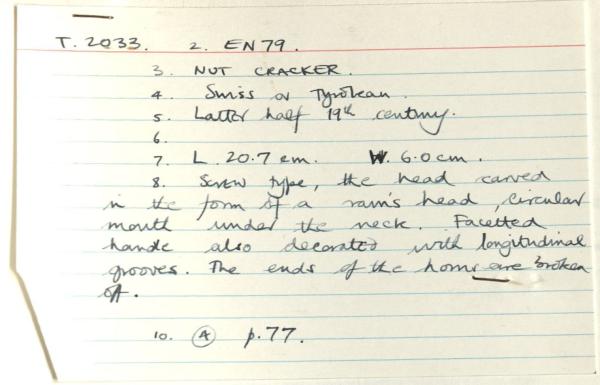 T. 2033. 2. EN 79.
3. NUT CRACKER.
4. Swiss or Tyrolean.
5. Latter half 19th century.
6.
7. L. 20.7 cm. W. 6.0 cm.
8. Screw type, the head carved
in the form of a ram's head, circular
mouth under the neck. Facetted
handle also decorated with longitudinal
grooves. The ends of the horns are broken
off.
10. A p.77.